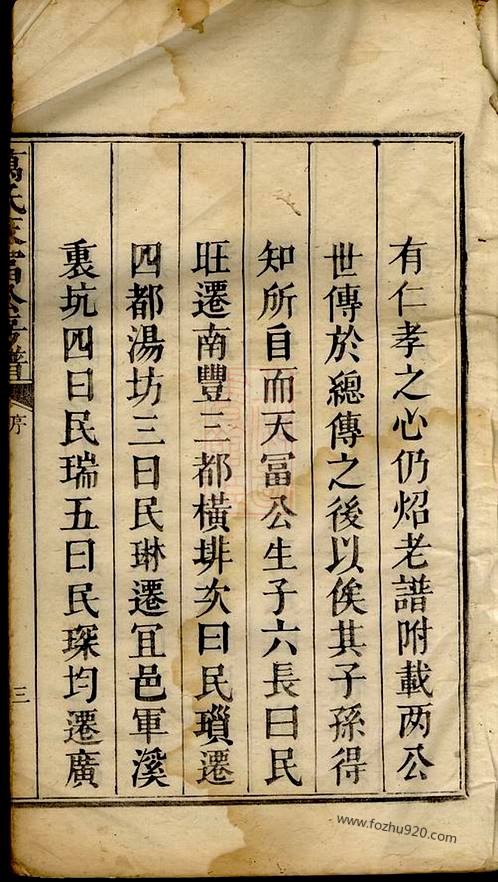 有仁孝之心仍炤老譜附載两公
世傳於總傳之後以俟其子孫得
知所自而天冨公生子六長曰民
旺遷南豐三都橫排次曰民瑣遷
四都湯坊三曰民琳遷冝邑軍溪
裏坑四曰民瑞五曰民琛均遷廣
萬氏天富公房譜
序
三
www.fozhu920.com